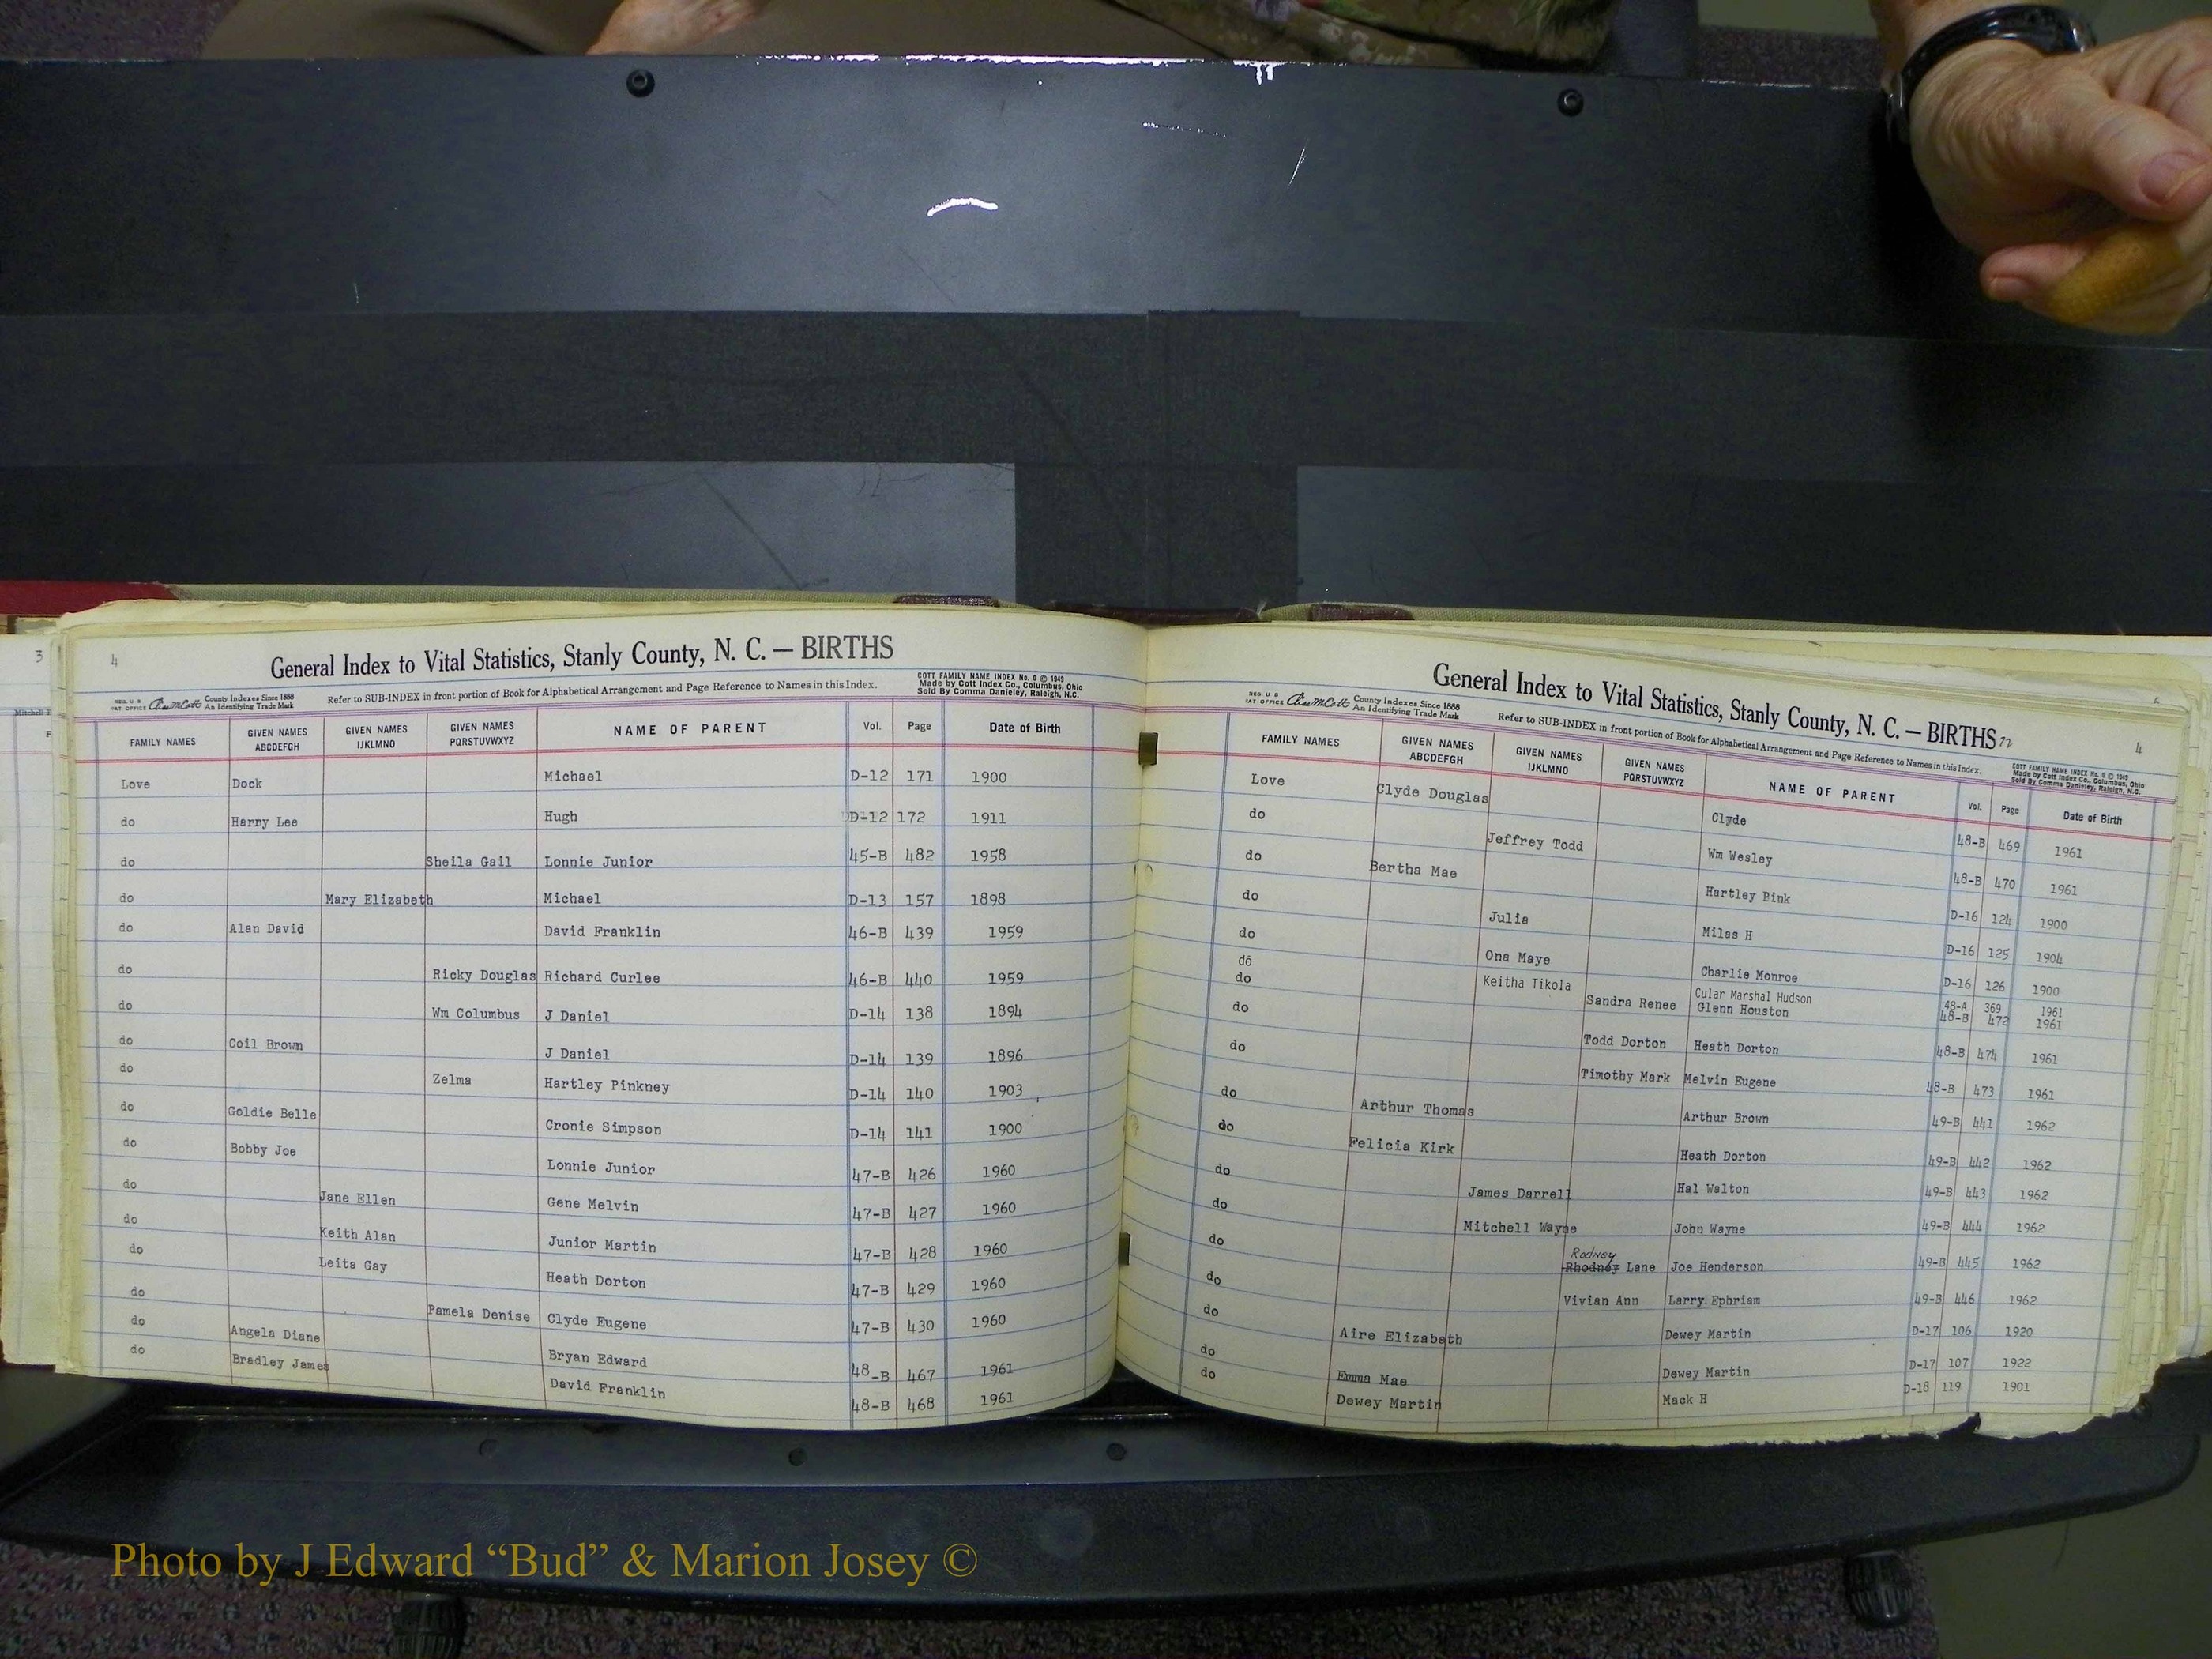 3
4
General Index to Vital Statistics, Stanly County, N. C. — BIRTHS
REG. U S PAT OFFICE County Indexes Since 1888 An Identifying Trade Mark
Refer to SUB-INDEX in front portion of Book for Alphabetical Arrangement and Page Reference to Names in this Index.
COTT FAMILY NAME INDEX No. 8 © 1949
Made by Cott Index Co., Columbus, Ohio
Sold By Comma Danieley, Raleigh, N.C.
FAMILY NAMES GIVEN NAMES ABCDEFGH GIVEN NAMES IJKLMNO GIVEN NAMES PQRSTUVWXYZ NAME OF PARENT Vol. Page Date of Birth
Love Dock Michael D-12 171 1900
do Harry Lee Hugh D-12 172 1911
do Sheila Gail Lonnie Junior 45-B 482 1958
do Mary Elizabeth Michael D-13 157 1898
do Alan David David Franklin 46-B 439 1959
do Ricky Douglas Richard Curlee 46-B 440 1959
do Wm Columbus J Daniel D-14 138 1894
do Coil Brown J Daniel D-14 139 1896
do Zelma Hartley Pinkney D-14 140 1903
do Goldie Belle Cronie Simpson D-14 141 1900
do Bobby Joe Lonnie Junior 47-B 426 1960
do Jane Ellen Gene Melvin 47-B 427 1960
do Keith Alan Junior Martin 47-B 428 1960
do Leita Gay Heath Dorton 47-B 429 1960
do Pamela Denise Clyde Eugene 47-B 430 1960
do Angela Diane Bryan Edward 48-B 467 1961
do Bradley James David Franklin 48-B 468 1961
General Index to Vital Statistics, Stanly County, N. C. — BIRTHS
4
REG. U S PAT OFFICE County Indexes Since 1888 An Identifying Trade Mark
Refer to SUB-INDEX in front portion of Book for Alphabetical Arrangement and Page Reference to Names in this Index.
COTT FAMILY NAME INDEX No. 8 © 1949
Made by Cott Index Co., Columbus, Ohio
Sold By Comma Danieley, Raleigh, N.C.
FAMILY NAMES GIVEN NAMES ABCDEFGH GIVEN NAMES IJKLMNO GIVEN NAMES PQRSTUVWXYZ NAME OF PARENT Vol. Page Date of Birth
Love Clyde Douglas Clyde 48-B 469 1961
do Jeffrey Todd Wm Wesley 48-B 470 1961
do Bertha Mae Hartley Pink D-16 124 1900
do Julia Milas H D-16 125 1904
do Ona Maye Charlie Monroe D-16 126 1900
do Keitha Tikola Cular Marshal Hudson 48-A 369 1961
do Sandra Renee Glenn Houston 48-B 472 1961
do Todd Dorton Heath Dorton 48-B 474 1961
do Timothy Mark Melvin Eugene 48-B 473 1961
do Arthur Thomas Arthur Brown 49-B 441 1962
do Felicia Kirk Heath Dorton 49-B 442 1962
do James Darrell Hal Walton 49-B 443 1962
do Mitchell Wayne John Wayne 49-B 444 1962
Rodney
do Rhodney Lane Joe Henderson 49-B 445 1962
do Vivian Ann Larry Ephriam 49-B 446 1962
do Aire Elizabeth Dewey Martin D-17 106 1920
do Emma Mae Dewey Martin D-17 107 1922
do Dewey Martin Mack H D-18 119 1901
Photo by J Edward “Bud” & Marion Josey ©